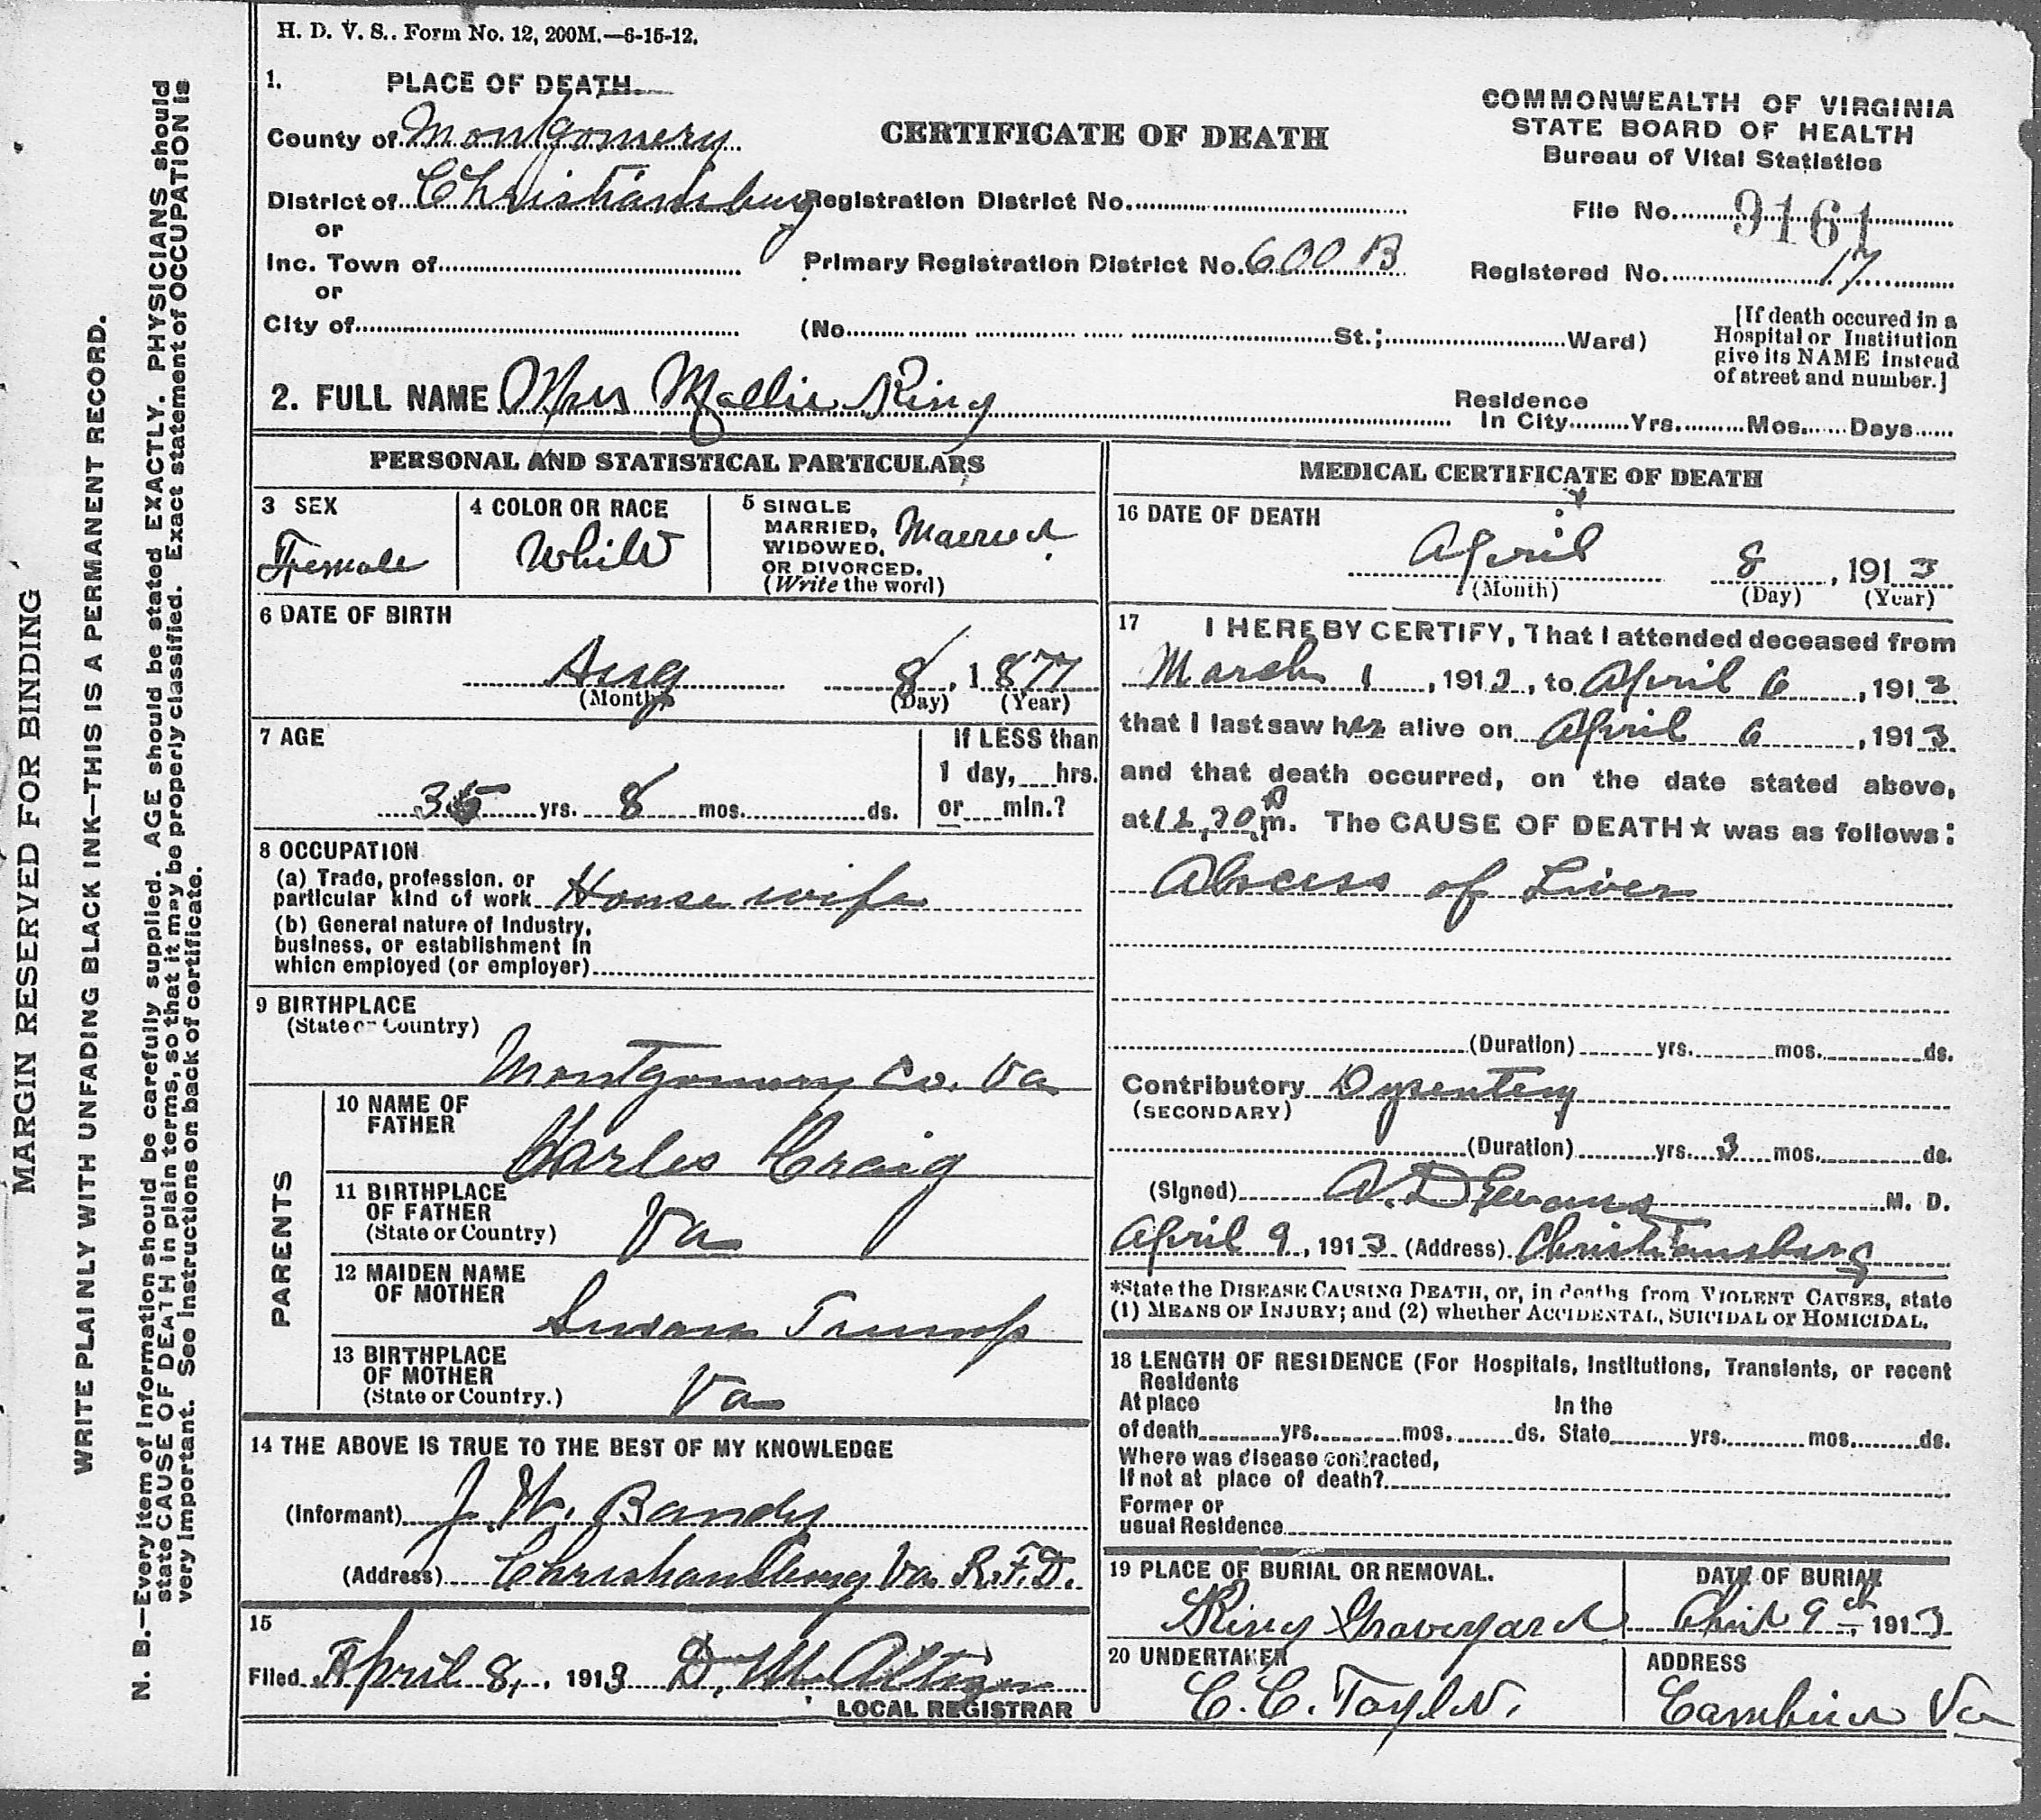 H. D. V. S.. Form No. 12, 200M.—6-15-12.
1. PLACE OF DEATH.
County of Montgomery
CERTIFICATE OF DEATH
COMMONWEALTH OF VIRGINIA
STATE BOARD OF HEALTH
Bureau of Vital Statistics
District of Christiansburg Registration District No.
File No. 9161
or
Inc. Town of
Primary Registration District No. 600 B
Registered No. 17
or
City of (No St.; Ward)
[If death occured in a
Hospital or Institution
give its NAME instead
of street and number.]
2. FULL NAME Mrs Mollie King
Residence
In City Yrs. Mos. Days
PERSONAL AND STATISTICAL PARTICULARS
3 SEX
Female
4 COLOR OR RACE
White
5 SINGLE
MARRIED,
WIDOWED,
OR DIVORCED.
(Write the word)
Married
6 DATE OF BIRTH
Aug 8, 1877
(Month) (Day) (Year)
7 AGE
35 yrs. 8 mos. ds.
If LESS than
1 day, hrs.
or min.?
8 OCCUPATION
(a) Trade, profession, or
particular kind of work House wife
(b) General nature of Industry,
business, or establishment in
which employed (or employer)
9 BIRTHPLACE
(State or Country)
Montgomery Co. Va
PARENTS
10 NAME OF
FATHER
Charles Craig
11 BIRTHPLACE
OF FATHER
(State or Country)
Va
12 MAIDEN NAME
OF MOTHER
Susan Trump
13 BIRTHPLACE
OF MOTHER
(State or Country.)
Va
14 THE ABOVE IS TRUE TO THE BEST OF MY KNOWLEDGE
(Informant) J. W. Bandy
(Address) Christiansburg Va. R.F.D.
15
Filed April 8, 1913 D. M. Altizer
LOCAL REGISTRAR
MEDICAL CERTIFICATE OF DEATH
16 DATE OF DEATH
April 8, 1913
(Month) (Day) (Year)
17 I HEREBY CERTIFY, That I attended deceased from
March 1, 1913, to April 6, 1913
that I last saw her alive on April 6, 1913
and that death occurred, on the date stated above,
at m. The CAUSE OF DEATH★ was as follows:
Abscess of Liver
(Duration) yrs. mos. ds.
Contributory Dysentery
(SECONDARY)
(Duration) yrs. 3 mos. ds.
(Signed) A. D Evans M. D.
April 9, 1913 (Address) Christiansburg
*State the DISEASE CAUSING DEATH, or, in deaths from VIOLENT CAUSES, state
(1) MEANS OF INJURY; and (2) whether ACCIDENTAL, SUICIDAL or HOMICIDAL.
18 LENGTH OF RESIDENCE (For Hospitals, Institutions, Transients, or recent
Residents
At place In the
of death yrs. mos. ds. State yrs. mos. ds.
Where was disease contracted,
If not at place of death?
Former or
usual Residence
19 PLACE OF BURIAL OR REMOVAL.
King Graveyard
DATE OF BURIAL
April 9th, 1913
20 UNDERTAKER
C. C. Taylor.
ADDRESS
Cambria Va
MARGIN RESERVED FOR BINDING
WRITE PLAINLY WITH UNFADING BLACK INK—THIS IS A PERMANENT RECORD.
N. B.—Every item of Information should be carefully supplied. AGE should be stated EXACTLY. PHYSICIANS should
state CAUSE OF DEATH in plain terms, so that it may be properly classified. Exact statement of OCCUPATION is
very important. See instructions on back of certificate.